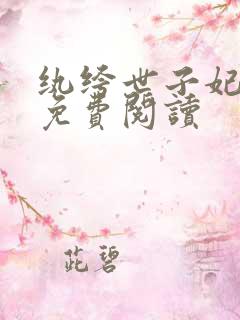 纨绔世子妃
免費閱讀
茈碧